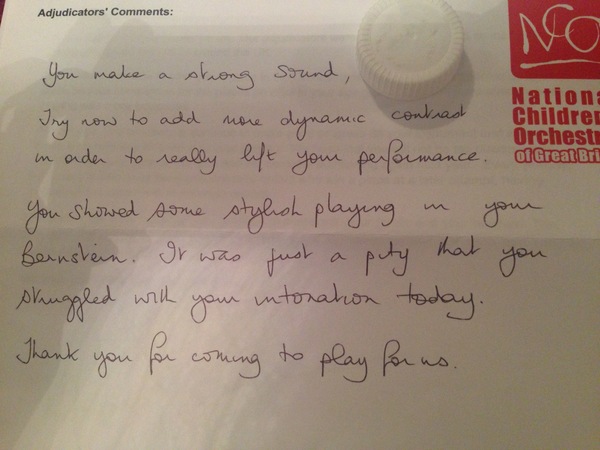 Adjudicators' Comments:
NCO
Nationa
Children
Orchestr
of Great Bri
You make a strong sound,
Try now to add more dynamic contrast
in order to really lift your performance.
You showed some stylish playing in your
Bernstein. It was just a pity that you
struggled with your intonation today.
Thank you for coming to play for us.